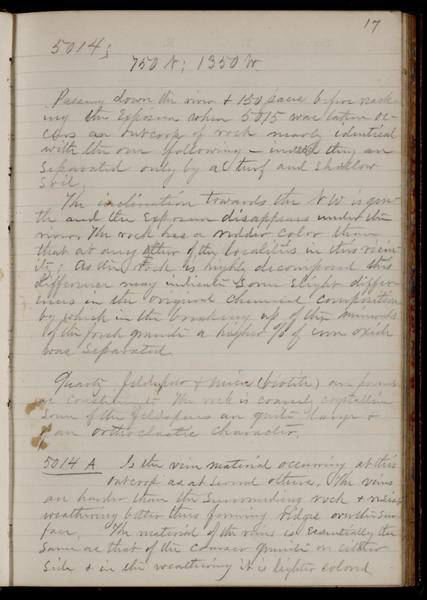 17
5014;
750 N; 1350 W.
Passing down the river + 150 paces before reach-
ing the Exposure where 5015 was taken oc-
curs an outcrop of rock nearly identical
with the one following — indeed they are
separated only by a turf and shallow
soil.
The inclination towards the N W is
and the Exposure disappears under the
river. The rock has a redder color than
that at any other of the localities in this vicin-
ity; As the rock is highly decomposed this
difference may indicate some slight differ-
ences in the original chemical composition
by which in the breaking up of the minerals
of the granite a higher % of iron oxide
was separated.
Quartz feldspar + mica (biotite) are present
as constituents. The rock is coarsely crystalline
some of the feldspars are quite large +
of an orthoclastic character.
5014 A Is the vein material occurring at this
outcrop as at several others. The veins
are harder than the surrounding rock + resist
weathering better thus forming ridges over the sur-
face. The material of the veins is essentially the
same as that of the coarser granite on either
side + in the weathering it is lighter colored